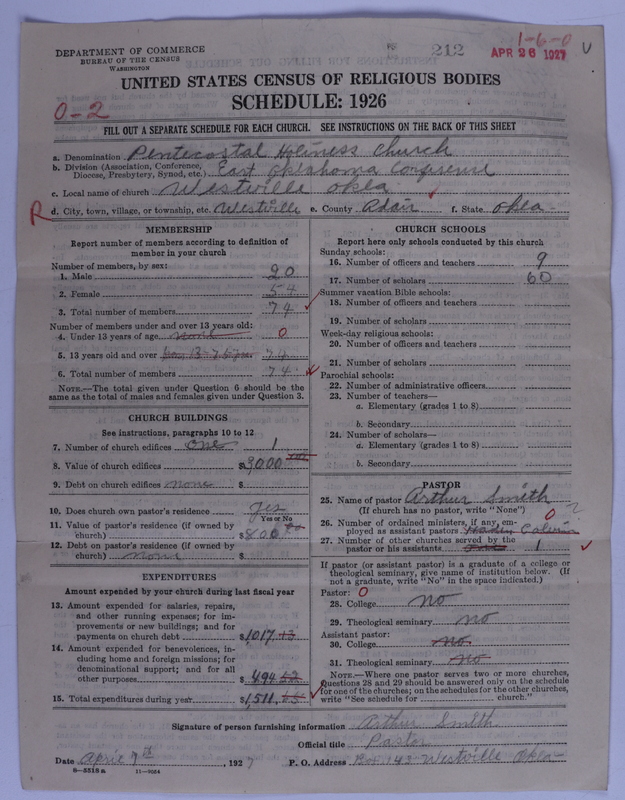 DEPARTMENT OF COMMERCE
BUREAU OF THE CENSUS
WASHINGTON
212
1-6-0
APR 26 1927
UNITED STATES CENSUS OF RELIGIOUS BODIES
SCHEDULE: 1926
0-2
FILL OUT A SEPARATE SCHEDULE FOR EACH CHURCH. SEE INSTRUCTIONS ON THE BACK OF THIS SHEET
a. Denomination Pentecostal Holiness Church
b. Division (Association, Conference,
Diocese, Presbytery, Synod, etc.) East Oklahoma Conference
c. Local name of church Westville Okla
R
d. City, town, village, or township, etc. Westville e. County Adair f. State Okla-
MEMBERSHIP
Report number of members according to definition of
member in your church
Number of members, by sex:
1. Male 20
2. Female 54
3. Total number of members 74
Number of members under and over 13 years old:
4. Under 13 years of age none 0
5. 13 years old and over 74
6. Total number of members 74
NOTE.—The total given under Question 6 should be the
same as the total of males and females given under Question 3.
CHURCH BUILDINGS
See instructions, paragraphs 10 to 12
7. Number of church edifices one 1
8. Value of church edifices $3,000
9. Debt on church edifices none $
10. Does church own pastor's residence yes
Yes or No
11. Value of pastor's residence (if owned by
church) $800 00
12. Debt on pastor's residence (if owned by
church) none $
EXPENDITURES
Amount expended by your church during last fiscal year
13. Amount expended for salaries, repairs,
and other running expenses; for im-
provements or new buildings; and for
payments on church debt $1017.13
14. Amount expended for benevolences, in-
cluding home and foreign missions; for
denominational support; and for all
other purposes $494.52
15. Total expenditures during year $1,511.65
CHURCH SCHOOLS
Report here only schools conducted by this church
Sunday schools:
16. Number of officers and teachers 9
17. Number of scholars 60
Summer vacation Bible schools:
18. Number of officers and teachers
19. Number of scholars
Week-day religious schools:
20. Number of officers and teachers
21. Number of scholars
Parochial schools:
22. Number of administrative officers
23. Number of teachers—
a. Elementary (grades 1 to 8)
b. Secondary
24. Number of scholars—
a. Elementary (grades 1 to 8)
b. Secondary
PASTOR
25. Name of pastor Arthur Smith
(If church has no pastor, write "None") 0 ?
26. Number of ordained ministers, if any, em-
ployed as assistant pastors Calvin
27. Number of other churches served by the
pastor or his assistants 1
If pastor (or assistant pastor) is a graduate of a college or
theological seminary, give name of institution below. (If
not a graduate, write "No" in the space indicated.)
Pastor: 0
28. College no
29. Theological seminary no
Assistant pastor:
30. College no
31. Theological seminary no
NOTE.—Where one pastor serves two or more churches,
Questions 28 and 29 should be answered only on the schedule
for one of the churches; on the schedules for the other churches,
write "See schedule for church."
Signature of person furnishing information Arthur Smith
Official title Pastor
Date April 9th, 1927 P. O. Address Box 143 Westville Okla-
8-5518 a 11-9054